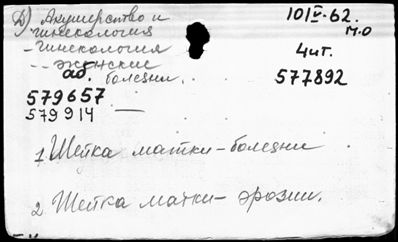 Д) Акушерство и
гинекология
- Гинекология
-- женские
аб. болезни.
579657
579914 —
101 V-62.
М.О
4ит.
577892
1 Шейка матки - болезни
2 Шейка матки - эрозии.